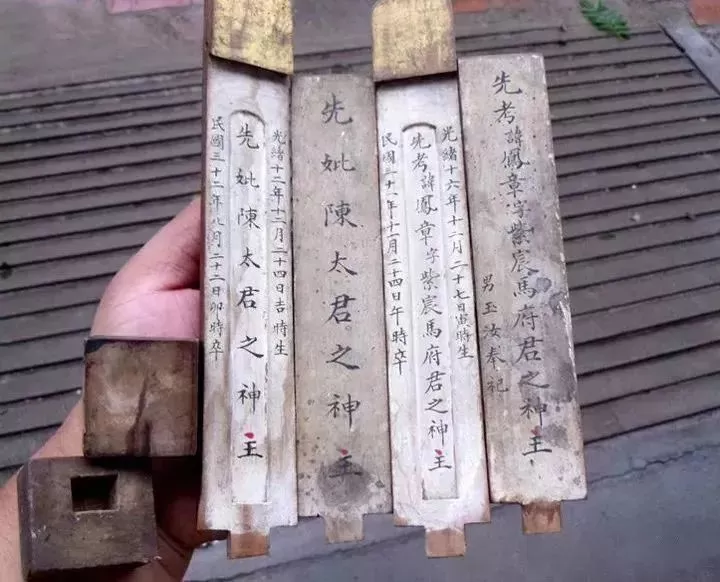 先考諱鳳章字紫宸馬府君之神主
男玉汝奉祀
光緒十六年十二月二十七日寅時生
先考諱鳳章字紫宸馬府君之神主
民國三十一年十一月二十四日午時卒
先妣陳太君之神主
光緒十二年十二月二十四日吉時生
先妣陳太君之神主
民國三十二年八月二十二日卯時卒